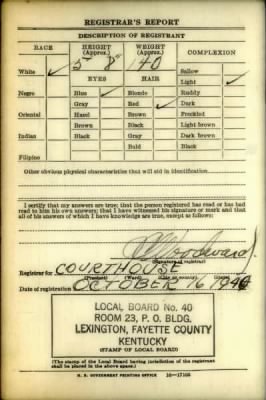 REGISTRAR'S REPORT
DESCRIPTION OF REGISTRANT
RACE HEIGHT (Approx.) WEIGHT (Approx.) COMPLEXION
White ✓ 5' 8" 140 Sallow
Light ✓
EYES HAIR
Negro Blue ✓ Blonde Ruddy
Gray Red ✓ Dark
Oriental Hazel Brown Freckled
Brown Black Light brown
Indian Black Gray Dark brown
Bald Black
Filipino
Other obvious physical characteristics that will aid in identification
I certify that my answers are true; that the person registered has read or has had
read to him his own answers; that I have witnessed his signature or mark and that
all of his answers of which I have knowledge are true, except as follows:
Woodward
(Signature of registrar)
Registrar for COURTHOUSE
(Precinct) (Ward) (City or county) (State)
Date of registration OCTOBER 16 1940
LOCAL BOARD No. 40
ROOM 23, P. O. BLDG.
LEXINGTON, FAYETTE COUNTY
KENTUCKY
(STAMP OF LOCAL BOARD)
(The stamp of the Local Board having jurisdiction of the registrant
shall be placed in the above space.)
U. S. GOVERNMENT PRINTING OFFICE 16—17105